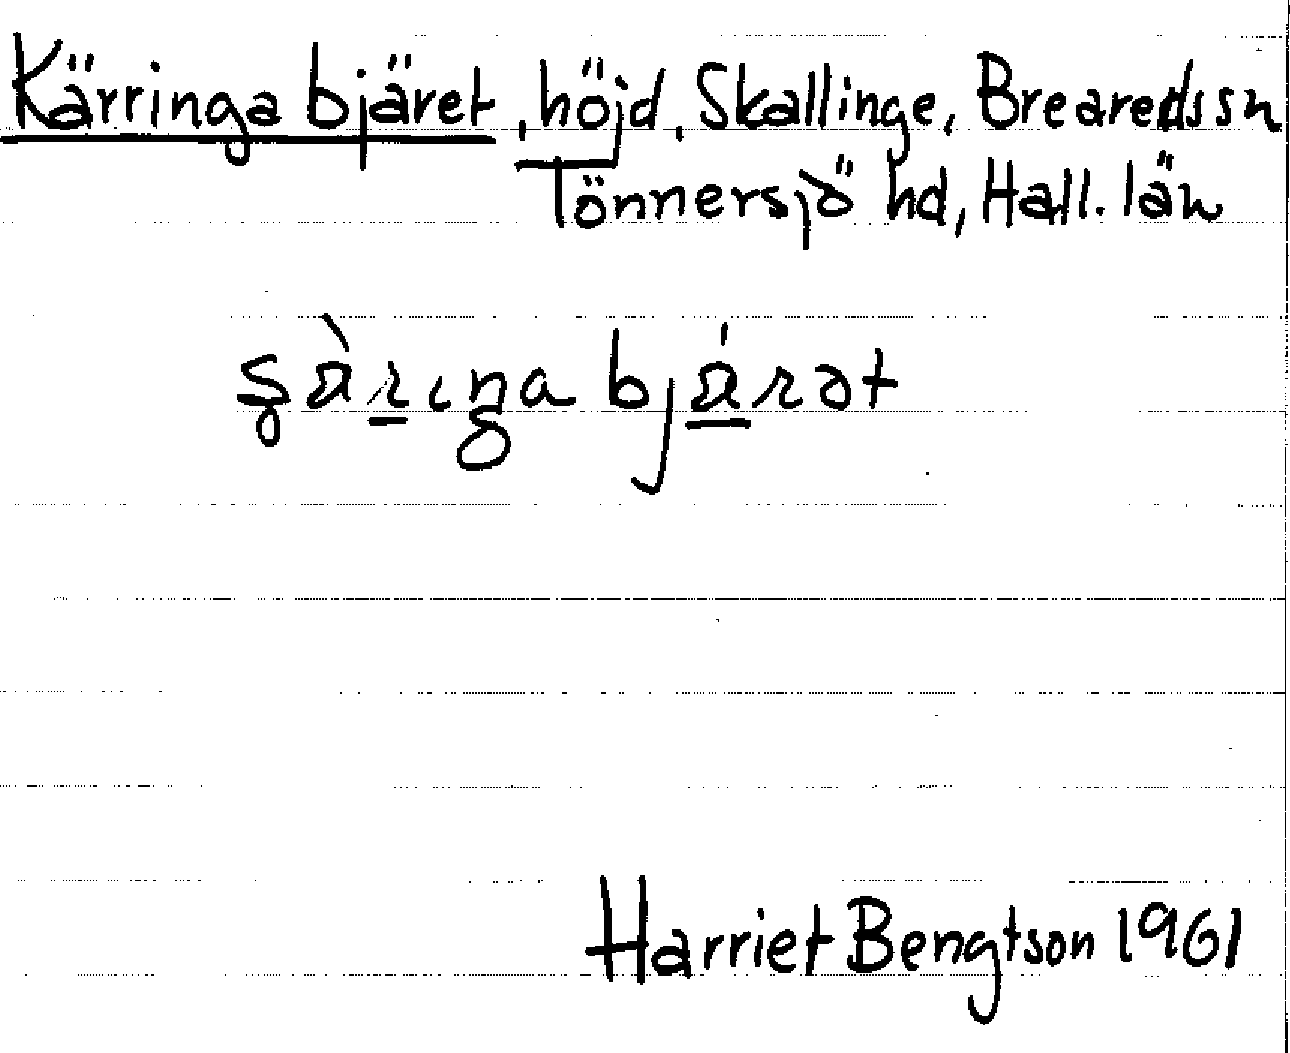 Kärringa bjäret, höjd, Skallinge, Breareds sn
Tönnersjö hd, Hall. län
bj
Harriet Bengtson 1961